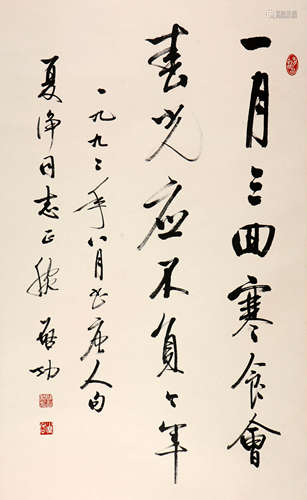 一月三回寒食會
春光应不負今年
一九九二年八月书唐人句
夏淨同志正腕 啟功